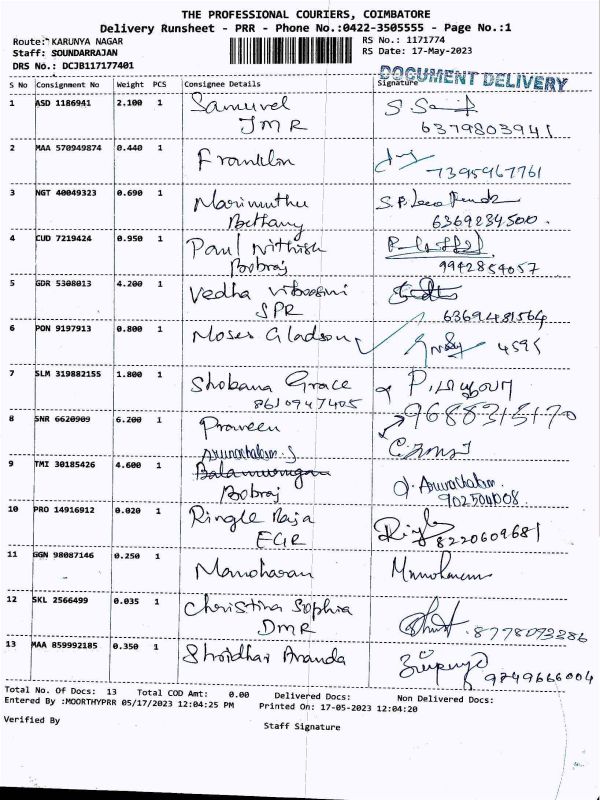 THE PROFESSIONAL COURIERS, COIMBATORE
Delivery Runsheet - PRR - Phone No.:0422-3505555 - Page No.:1
Route: KARUNYA NAGAR RS No.: 1171774
Staff: SOUNDARRAJAN RS Date: 17-May-2023
DRS No.: DCJB117177401
DOCUMENT DELIVERY
S No Consignment No Weight PCS Consignee Details Signature
1 ASD 1186941 2.100 1 Samuvel
JMR 6379803941
2 MAA 570949874 0.440 1 Franklin
7395967761
3 NGT 40049323 0.690 1 Marimuthu
Bethany 6369234500.
4 CUD 7219424 0.950 1 Paul Nithish
Bobraj 9942854057
5 GDR 5308013 4.200 1 Vedha
SPR 6369481564
6 PON 9197913 0.800 1 Moses Gladson 4595
7 SLM 319882155 1.800 1 Shobana Grace
8610947405
9688315170
8 SNR 6620909 6.200 1 Praveen
Arunachalam.S
9 TMI 30185426 4.600 1 Balamurugan
Bobraj Arunachalam.
902504008
10 PRO 14916912 0.020 1 Ringle Raja
EGR 8220609681
11 GGN 98087146 0.250 1 Manoharan Manoharan
12 SKL 2566499 0.035 1 Christina Sophia
DMR 8778093286
13 MAA 859992185 0.350 1 Shridhar Ananda
9249666004
Total No. Of Docs: 13 Total COD Amt: 0.00 Delivered Docs: Non Delivered Docs:
Entered By :MOORTHYPRR 05/17/2023 12:04:25 PM Printed On: 17-05-2023 12:04:20
Verified By Staff Signature